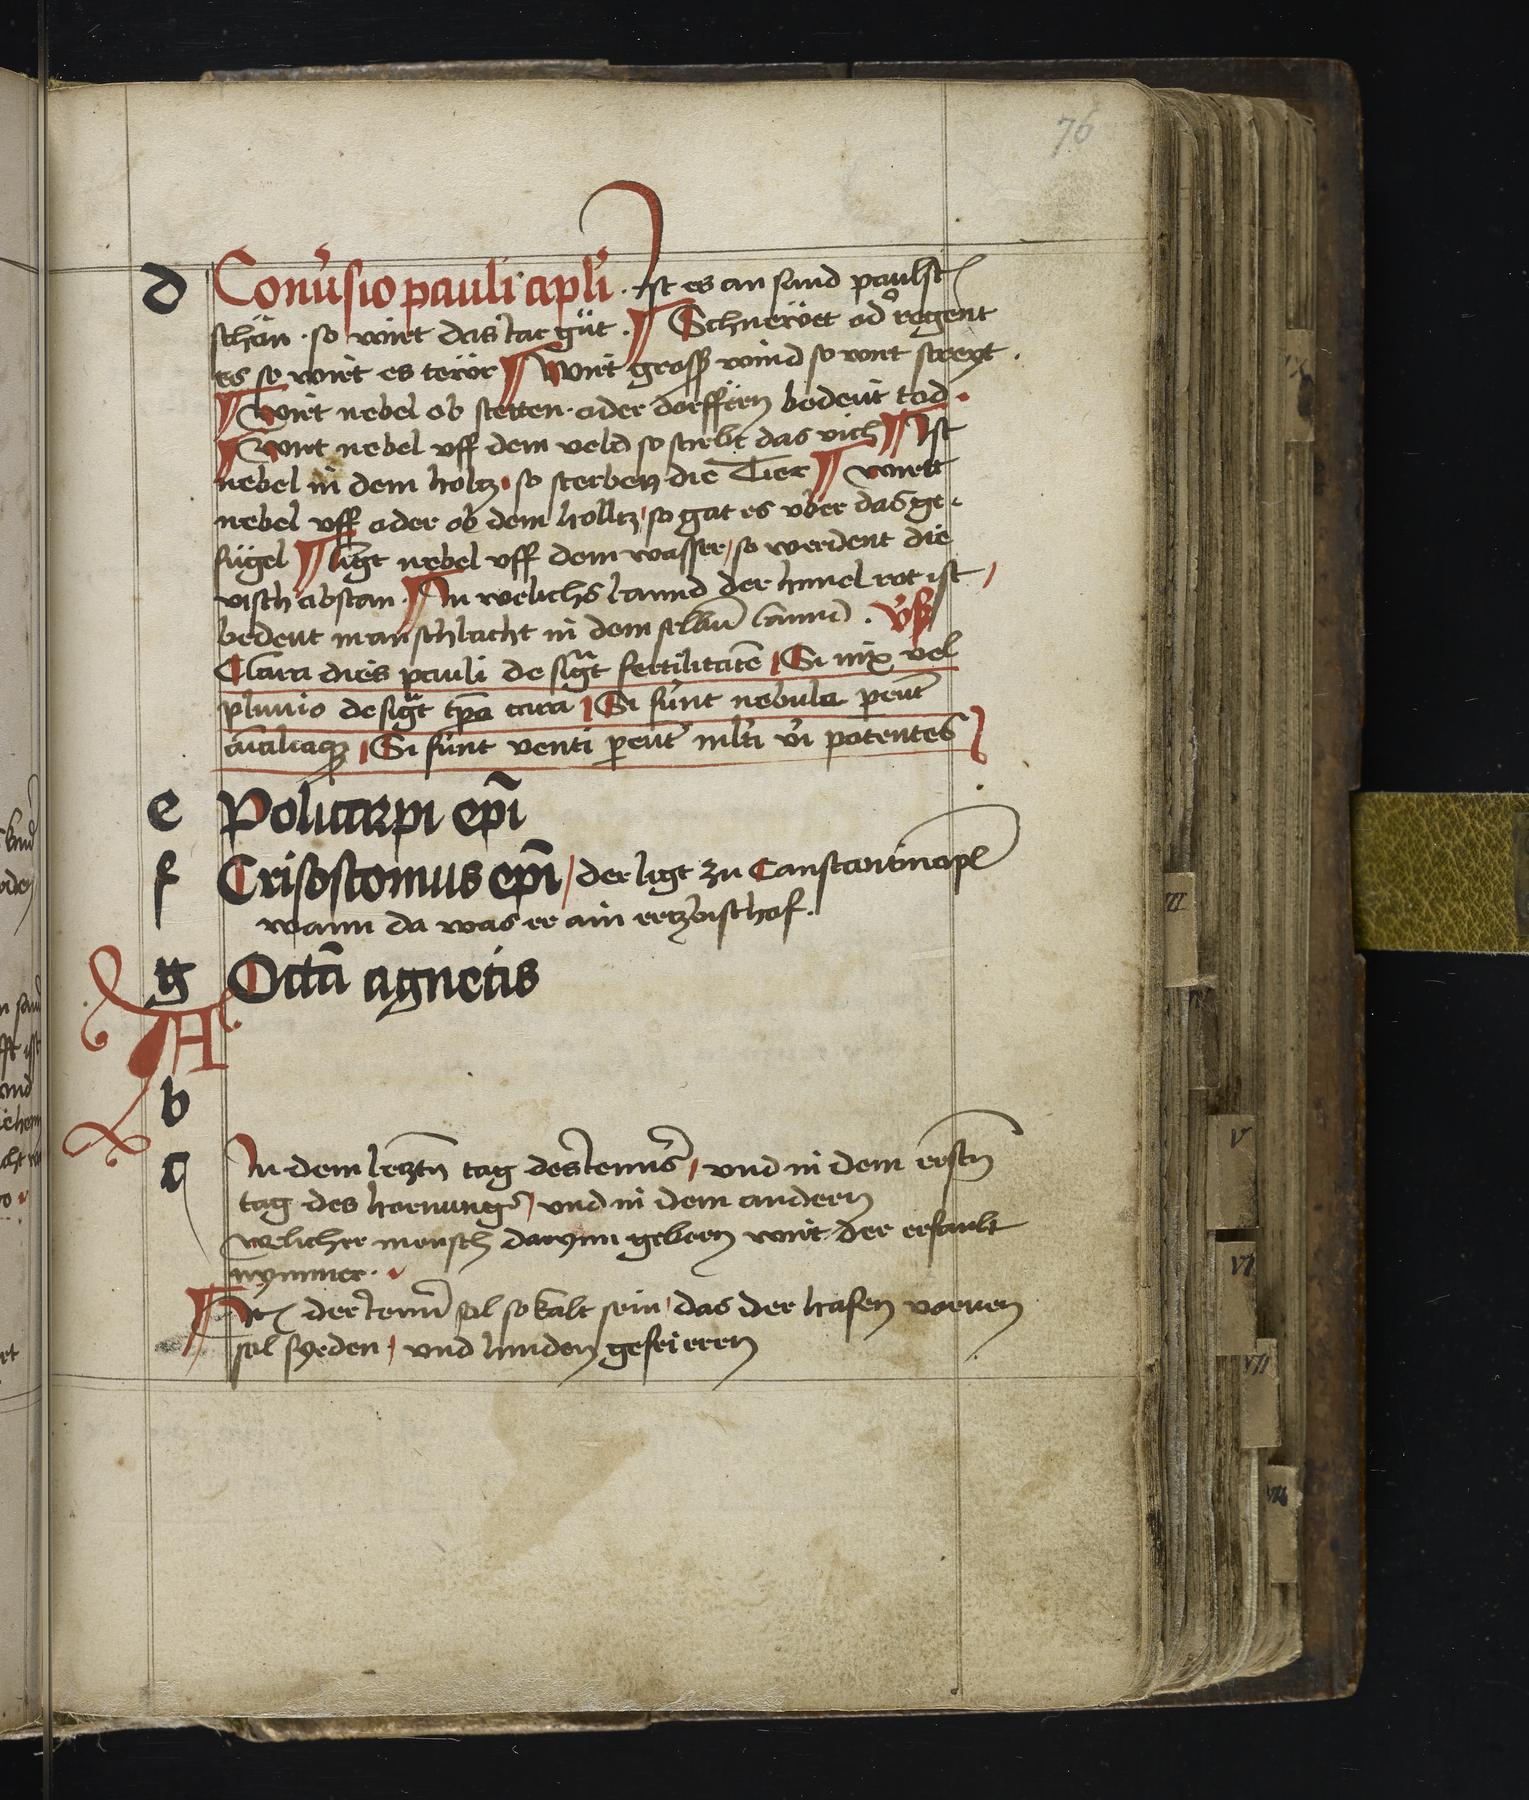 76
d Conu̓sio pauli apl̓i . Ist es an sand paulst
schän · so wirt das iar gu̎t . ¶ Schneÿet od̓ regent
es so wirt es teẅr ¶ Wirt gross wind so wirt streyt .
¶ Wirt nebel ob stetten · oder dorffern bedeut tod .
¶ Wirt nebel vff dem veld so stirbt das vich ¶ Ist
nebel in dem holtz · so sterben die Tier ¶ wirtt
nebel vff oder ob dem holltz / so gat es v̈ber das ge-
fügel ¶ ligt nebel vff dem wasser / so werdent die
visch abstan . ¶ In welichs lannd der himel rot ist /
bedeut manschlacht in dem selbn̄ lannd . v̓s
Clara dies pauli designat fertilitatē / Si nix vel
pluuio designat tp̄a cara / Si fùnt nebula peut̄
aīaliaq3 / Si fùnt venti peut̄ ml̓ti vi̓ potentes
e Policarpi ep̄i
f Crisostomus ep̄i / der ligt zu Constantinopel
wann da was er ain ertzbischof .
g Octā agnetis
A
b
c In dem letztn̄ tag des Ienn̓s / vnd in dem erstn̄
tag des hornungs / vnd in dem andern
welicher mensch darynn geborn wirt der erfault
nymmer .
¶ Itē der Ienn̓ sol so kalt sein / das der hafen vornen
sol syeden / vnd hinden gefrieren
III
V
VI
VII